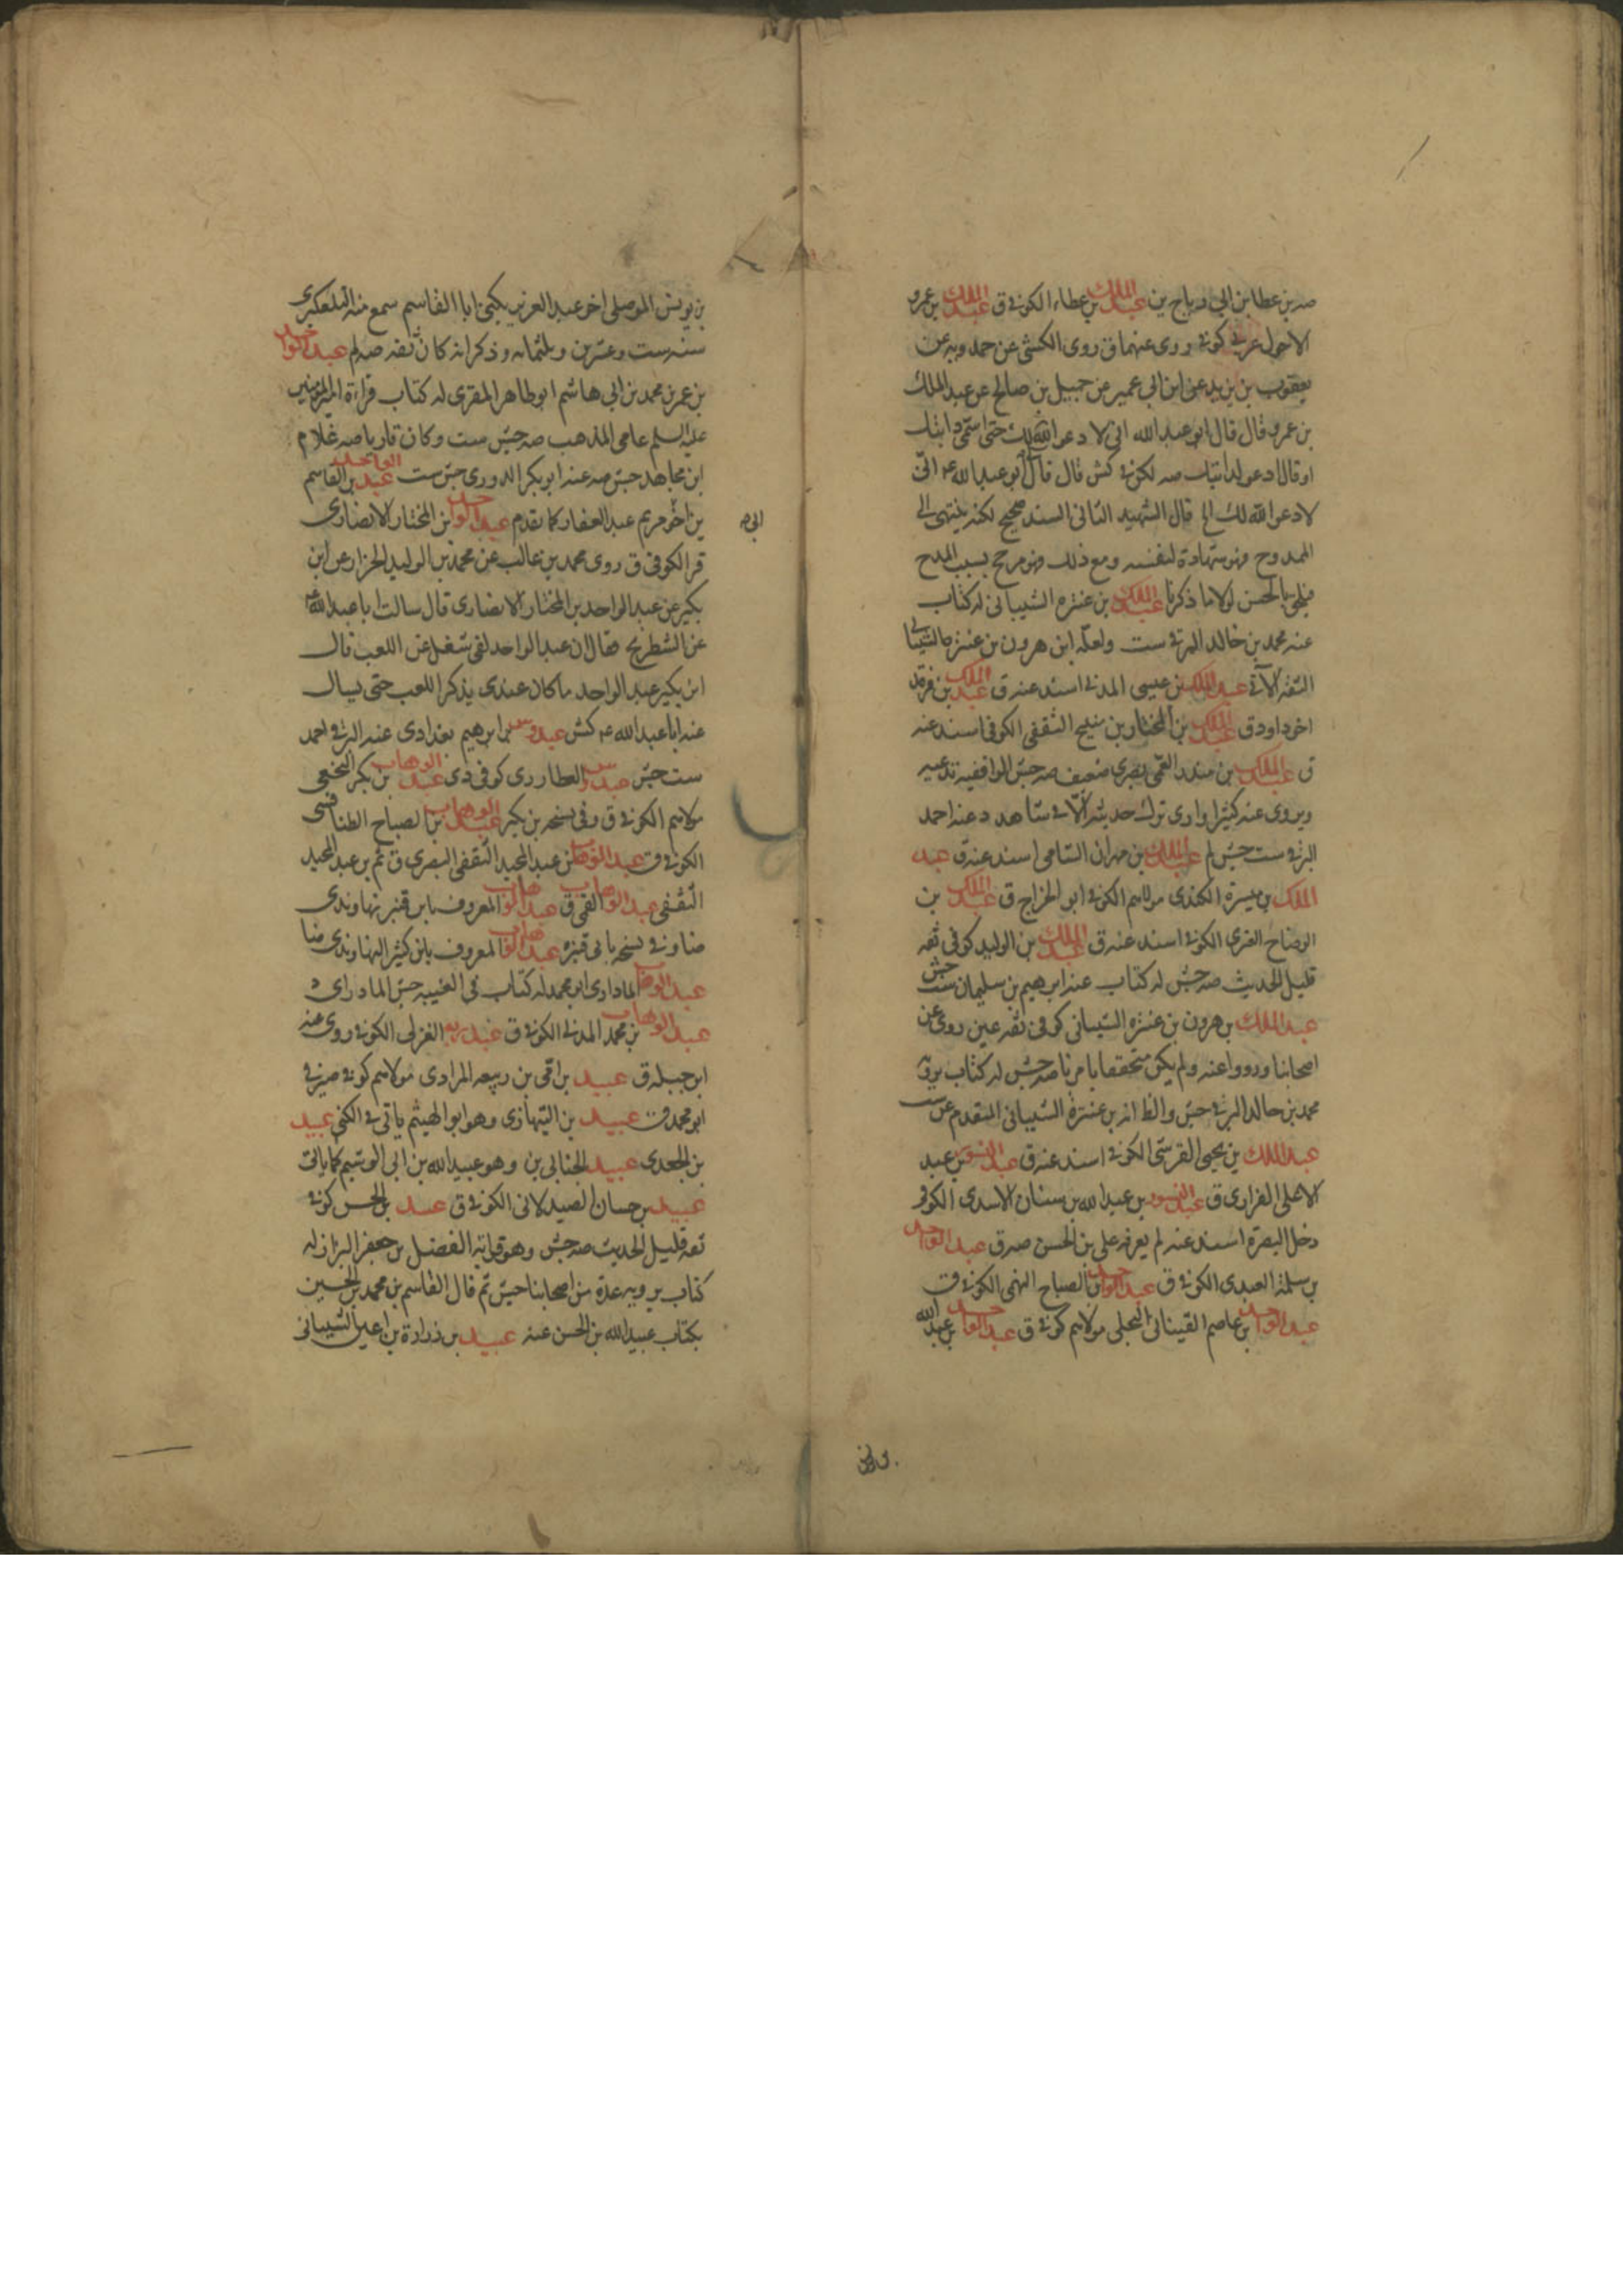 صه بن عطا بن ابي رياح ين عبد الملك بن عطاء الكوفي ق عبد الملك بن عمرو
الاحول عربي كوفي روى عنهما ق روى الكشي عن حمدويه عن
يعقوب بن يزيد عن ابن ابي عمير عن جميل بن صالح عن عبد الملك
بن عمرو قال قال ابو عبد الله اني لادعو الله لك حتى اسمي دابتك
او قال ادعو لدابتك صه لكوفي كش قال قال ابو عبد الله ع اني
لادعو الله لك الخ قال الشهيد الثاني السند صحيح لكنه ينتهي الى
الممدوح فهو شهادة لنفسه ومع ذلك فهو مرجح بسبب المدح
فيلحق بالحسن لولا ما ذكرنا عبد الملك بن عنتره الشيباني له كتاب
عنه محمد بن خالد البرقي ست ولعله ابن هرون بن عنترة الشيباني
الثقة الآتي عبد الملك بن عيسى المدني اسند عنه ق عبد الملك بن فرقد
اخو داود ق عبد الملك بن المختار بن منيح الثقفي الكوفي اسند عنه
ق عبد الملك بن منذر القمي بصري ضعيف صه جش الواقفيه
ويروى عنه كثيرا وارى ترك حديثه الا في شاهد د عنه احمد
البرقي ست جش لم عبد الملك بن مهران الشامي اسند عنه ق عبد
الملك بن ميسرة الكندي مولاهم الكوفي ابو الجراح ق عبد الملك بن
الوضاح العنزي الكوفي اسند عنه ق عبد الملك بن الوليد كوفي ثقه
قليل الحديث صه جش له كتاب عنه ابرهيم بن سليمان ست جش
عبد الملك بن هرون بن عنتره الشيباني كوفي ثقه عين روى عن
اصحابنا ورووا عنه ولم يكن متحققا بامرنا صه جش له كتاب يرويه
محمد بن خالد البرقي جش والظ انه بن عنترة الشيباني المتقدم عن ست
عبد الملك بن يحيى القرشي الكوفي اسند عنه ق عبد النور بن عبد
الاعلى الفزاري ق عبد النور بن عبد الله بن سنان الاسدي الكوفي
دخل البصرة اسند عنه لم يعرفه علي بن الحسن صه ق عبد الواحد
بن سلمة العبدي الكوفي ق عبد الواحد بن الصباح النهمي الكوفي ق
عبد الواحد بن عاصم القيناني البجلي مولاهم كوفي ق عبد الواحد بن عبد الله
بن يونس الموصلي اخو عبد العزيز يكنى ابا القاسم سمع منه التلعكبري
سنه ست وعشرين وثلثمائه وذكر انه كان ثقه صه لم عبد الواحد
بن عمر بن محمد بن ابي هاشم ابو طاهر المقري له كتاب قراءة امير المؤمنين
عليه السلم عامي المذهب صه جش ست وكان قاريا صه غلام
ابن مجاهد جش صه عنه ابو بكر الدوري جش ست عبد الواحد بن القاسم
بن اخو مريم عبد الغفار كما تقدم عبد الواحد بن المختار الانصاري
ابي م
قر الكوفي ق روى محمد بن غالب عن محمد بن الوليد الخزاز عن ابن
بكير عن عبد الواحد بن المختار الانصاري قال سالت ابا عبد الله ع
عن الشطرنج فقال ان عبد الواحد لفي شغل عن اللعب قال
ابن بكير عبد الواحد ما كان عندي يذكر اللعب حتى يسال
عنه ابا عبد الله ع كش عبدوس بن ابرهيم بغدادي عنه البرقي احمد
ست جش عبدوس العطار دي كوفي دي عبد الوهاب بن بكر النخعي
مولاهم الكوفي ق وفي نسخه بن بكير عبد الوهاب بن الصباح الطنافسي
الكوفي ق عبد الوهاب بن عبد المجيد الثقفي البصري ق ثم بن عبد المجيد
الثقفي عبد الوهاب القمي ق عبد الوهاب المعروف بابن قنبر نهاوندي
ضا وفي نسخه بابي قنبره عبد الوهاب المعروف بابن كثير النهاوندي ضا
عبد الوهاب المادراي ابو محمد له كتاب في الغيبه جش المادراي د
عبد الوهاب بن محمد المدني الكوفي ق عبد ربه الغزلي الكوفي روى عنه
ابن جبله ق عبيد بن اقى بن ربيعه المرادي مولاهم كوفي صيرفي
ابو محمد ق عبيد بن التيهان دي وهو ابو الهيثم ياتي في الكنى عبيد
بن الجعدي عبيد الجنابي بن وهو عبيد الله بن ابي الوسيم كما ياتي
عبيد بن حسان الصيدلاني الكوفي ق عبيد بن الحسن كوفي
ثقه قليل الحديث صه جش وهو قرابة الفضل بن جعفر البزاز له
كتاب يرويه عدة من اصحابنا جش ثم قال القاسم بن محمد بن الحسين
بكتاب عبيد الله بن الحسن عنه عبيد بن زرارة بن اعين الشيباني